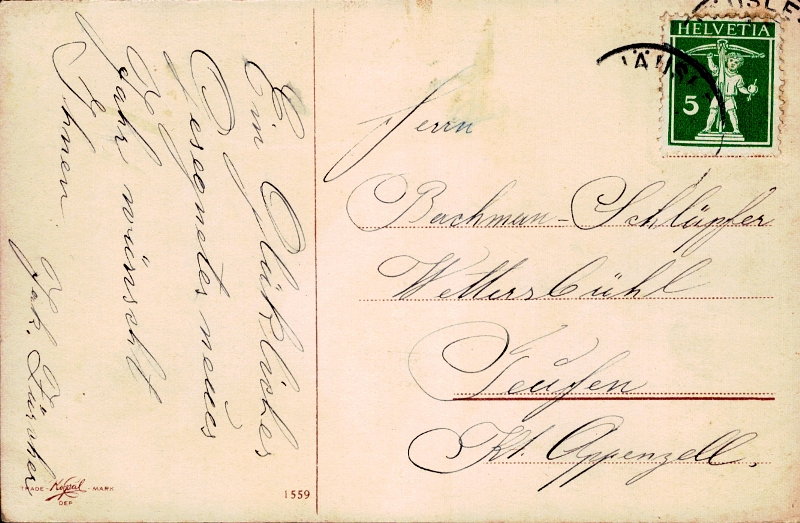 Ein Glükliches
Gesegnetes neues
Jahr wünscht
Ihnen
Jak. Zürcher
TRADE - Kopal - MARK
DEP
1559
HELVETIA
5
Herrn
Bachman-Schläpfer
Wettersbühl
Teufen
Kt. Appenzell.